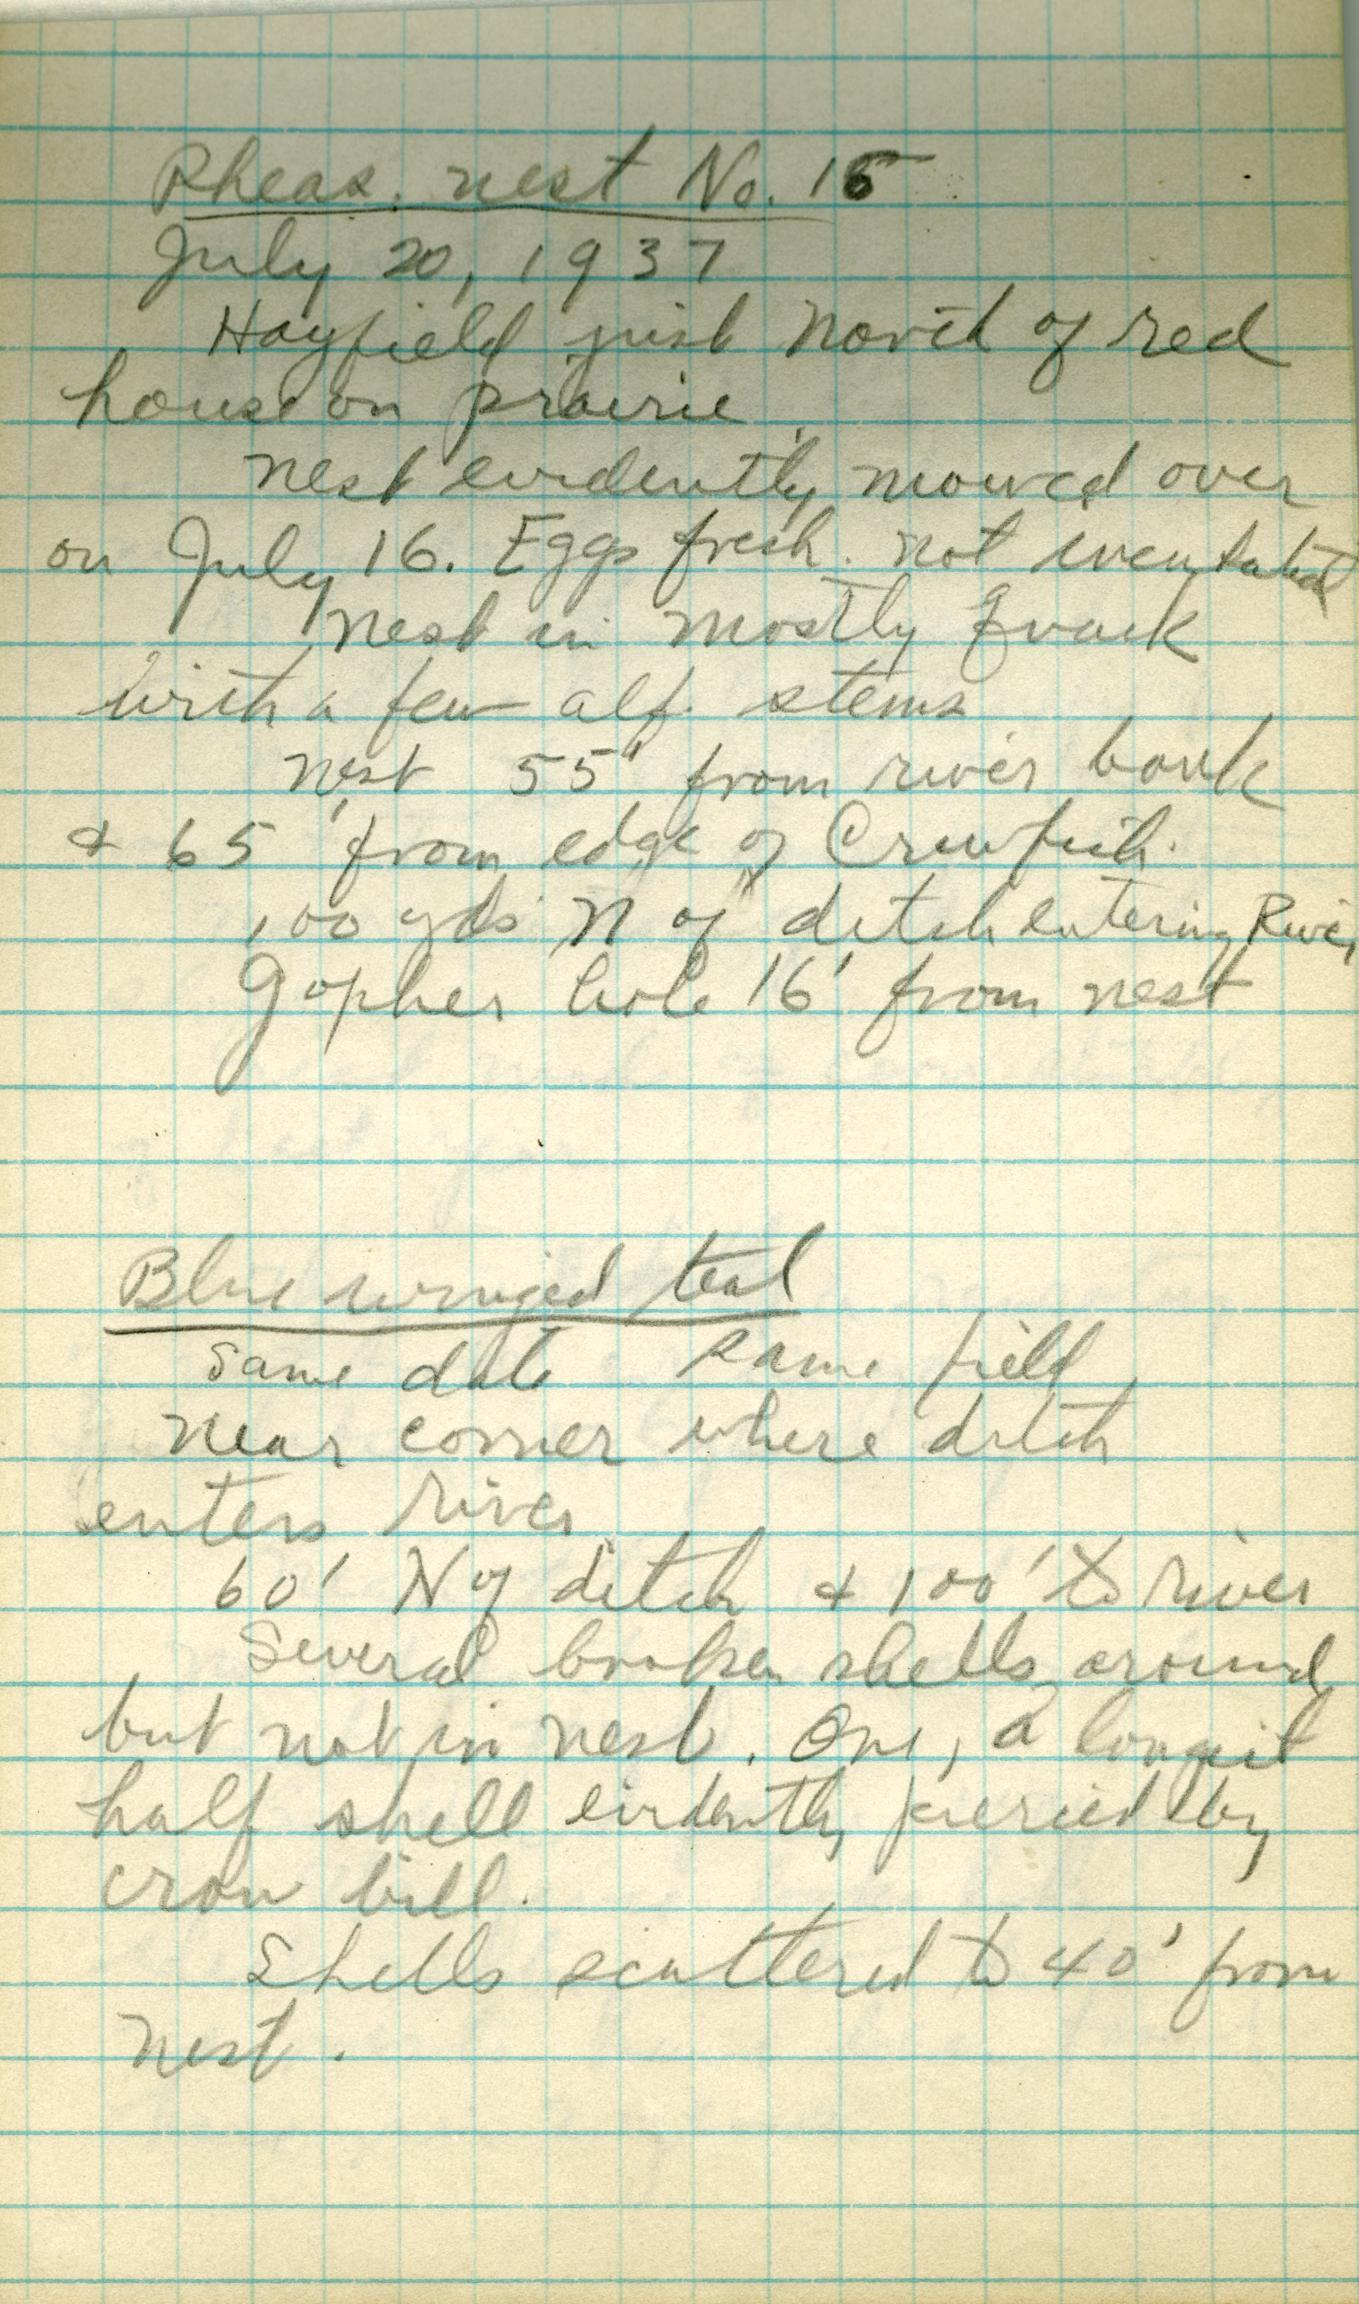 Pheas. nest No. 15
July 20, 1937
Hayfield just North of red
house on prairie
Nest evidently mowed over
on July 16. Eggs fresh. not incubated
Nest in mostly quack
with a few alf. stems
Nest 55' from river bank
& 65' from edge of Crawfish.
100 yds N of ditch entering River
Gopher hole 16' from nest
Blue winged teal
Same date same field
Near corner where ditch
enters river
60' N of ditch & 100' to river
Several broken shells around
but not in nest. One, a longit
half shell evidently pierced by
crow bill.
Shells scattered to 40' from
nest.